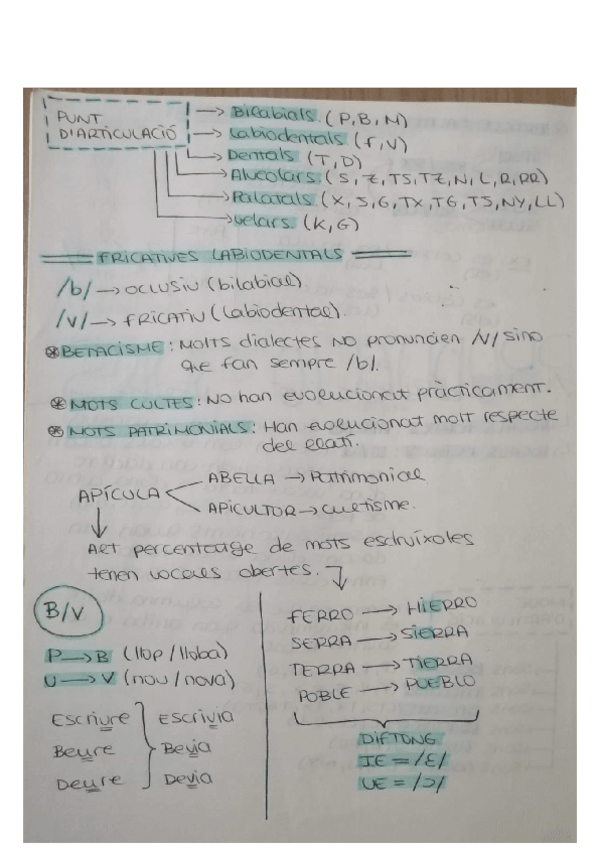 PUNT D'ARTICULACIÓ
→ Bilabials. (P, B, M)
→ Labiodentals (f, V)
→ Dentals (T, D)
→ Alveolars. (S, Z, TS, TZ, N, L, R, RR)
→ Palatals. (X, J, G, TX, TG, TJ, NY, LL)
→ Velars. (K, G)
FRICATIVES LABIODENTALS
/b/ → OCLUSIU (bilabial)
/v/ → FRICATIU (Labiodental).
* BETACISME: Molts dialectes NO pronuncien /v/ sino
que fan sempre /b/.
* MOTS CULTES: No han evolucionat pràcticament.
* MOTS PATRIMONIALS: Han evolucionat molt respecte
del llatí.
APÍCULA
ABELLA → Patrimonial
APICULTOR → Cultisme.
Alt percentatge de mots esdruíxoles
tenen vocals obertes.
B/V
P → B (llop / lloba)
U → V (nou / nova)
Escriure } Escrivia
Beure } Bevia
Deure } Devia
FERRO → HIERRO
SERRA → SIERRA
TERRA → TIERRA
POBLE → PUEBLO
DIFTONG
IE = /ɛ/
UE = /ɔ/